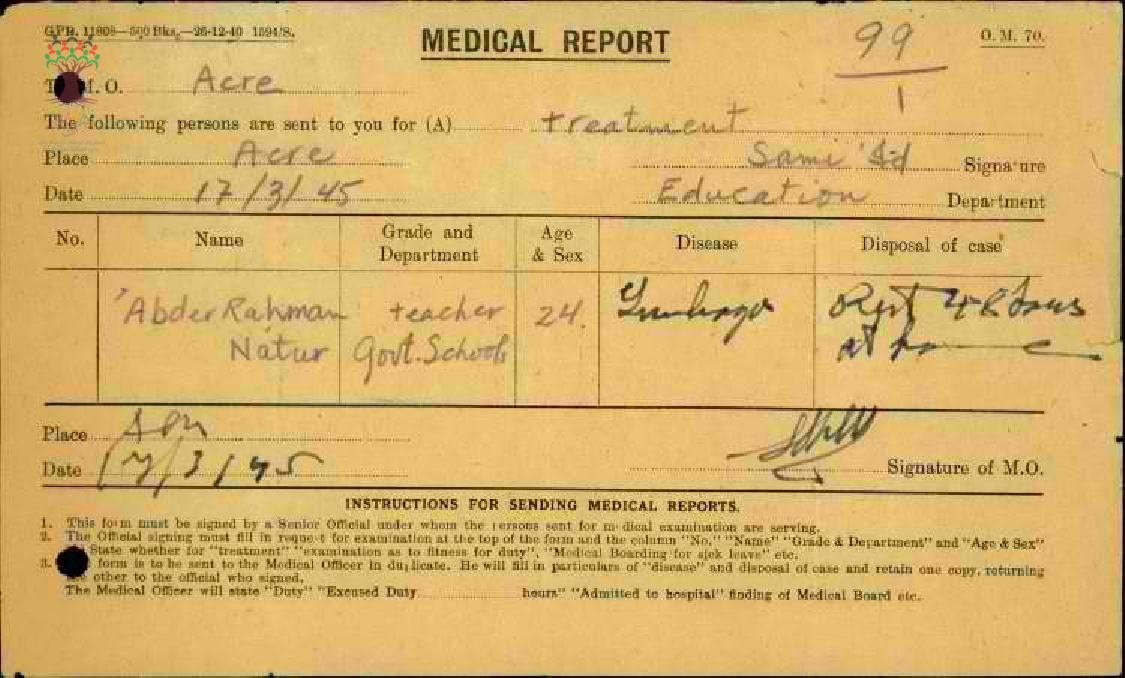 G.P.D. 11808—500 Bks.—26-12-40 1594/S.
MEDICAL REPORT
99
1
O. M. 70.
To M. O. Acre
The following persons are sent to you for (A) treatment
Place Acre
Sami Signature
Date 17/3/45
Education Department
No. Name Grade and Department Age & Sex Disease Disposal of case
'Abder Rahman Natur teacher Govt. Schools 24. Lumbago Rest 48 hours
at home
Place Acre
Date 17/3/45
Signature of M.O.
INSTRUCTIONS FOR SENDING MEDICAL REPORTS.
1. This form must be signed by a Senior Official under whom the persons sent for medical examination are serving.
2. The Official signing must fill in request for examination at the top of the form and the column "No." "Name" "Grade & Department" and "Age & Sex"
State whether for "treatment" "examination as to fitness for duty", "Medical Boarding for sick leave" etc.
3. form is to be sent to the Medical Officer in duplicate. He will fill in particulars of "disease" and disposal of case and retain one copy, returning
the other to the official who signed.
The Medical Officer will state "Duty" "Excused Duty hours" "Admitted to hospital" finding of Medical Board etc.